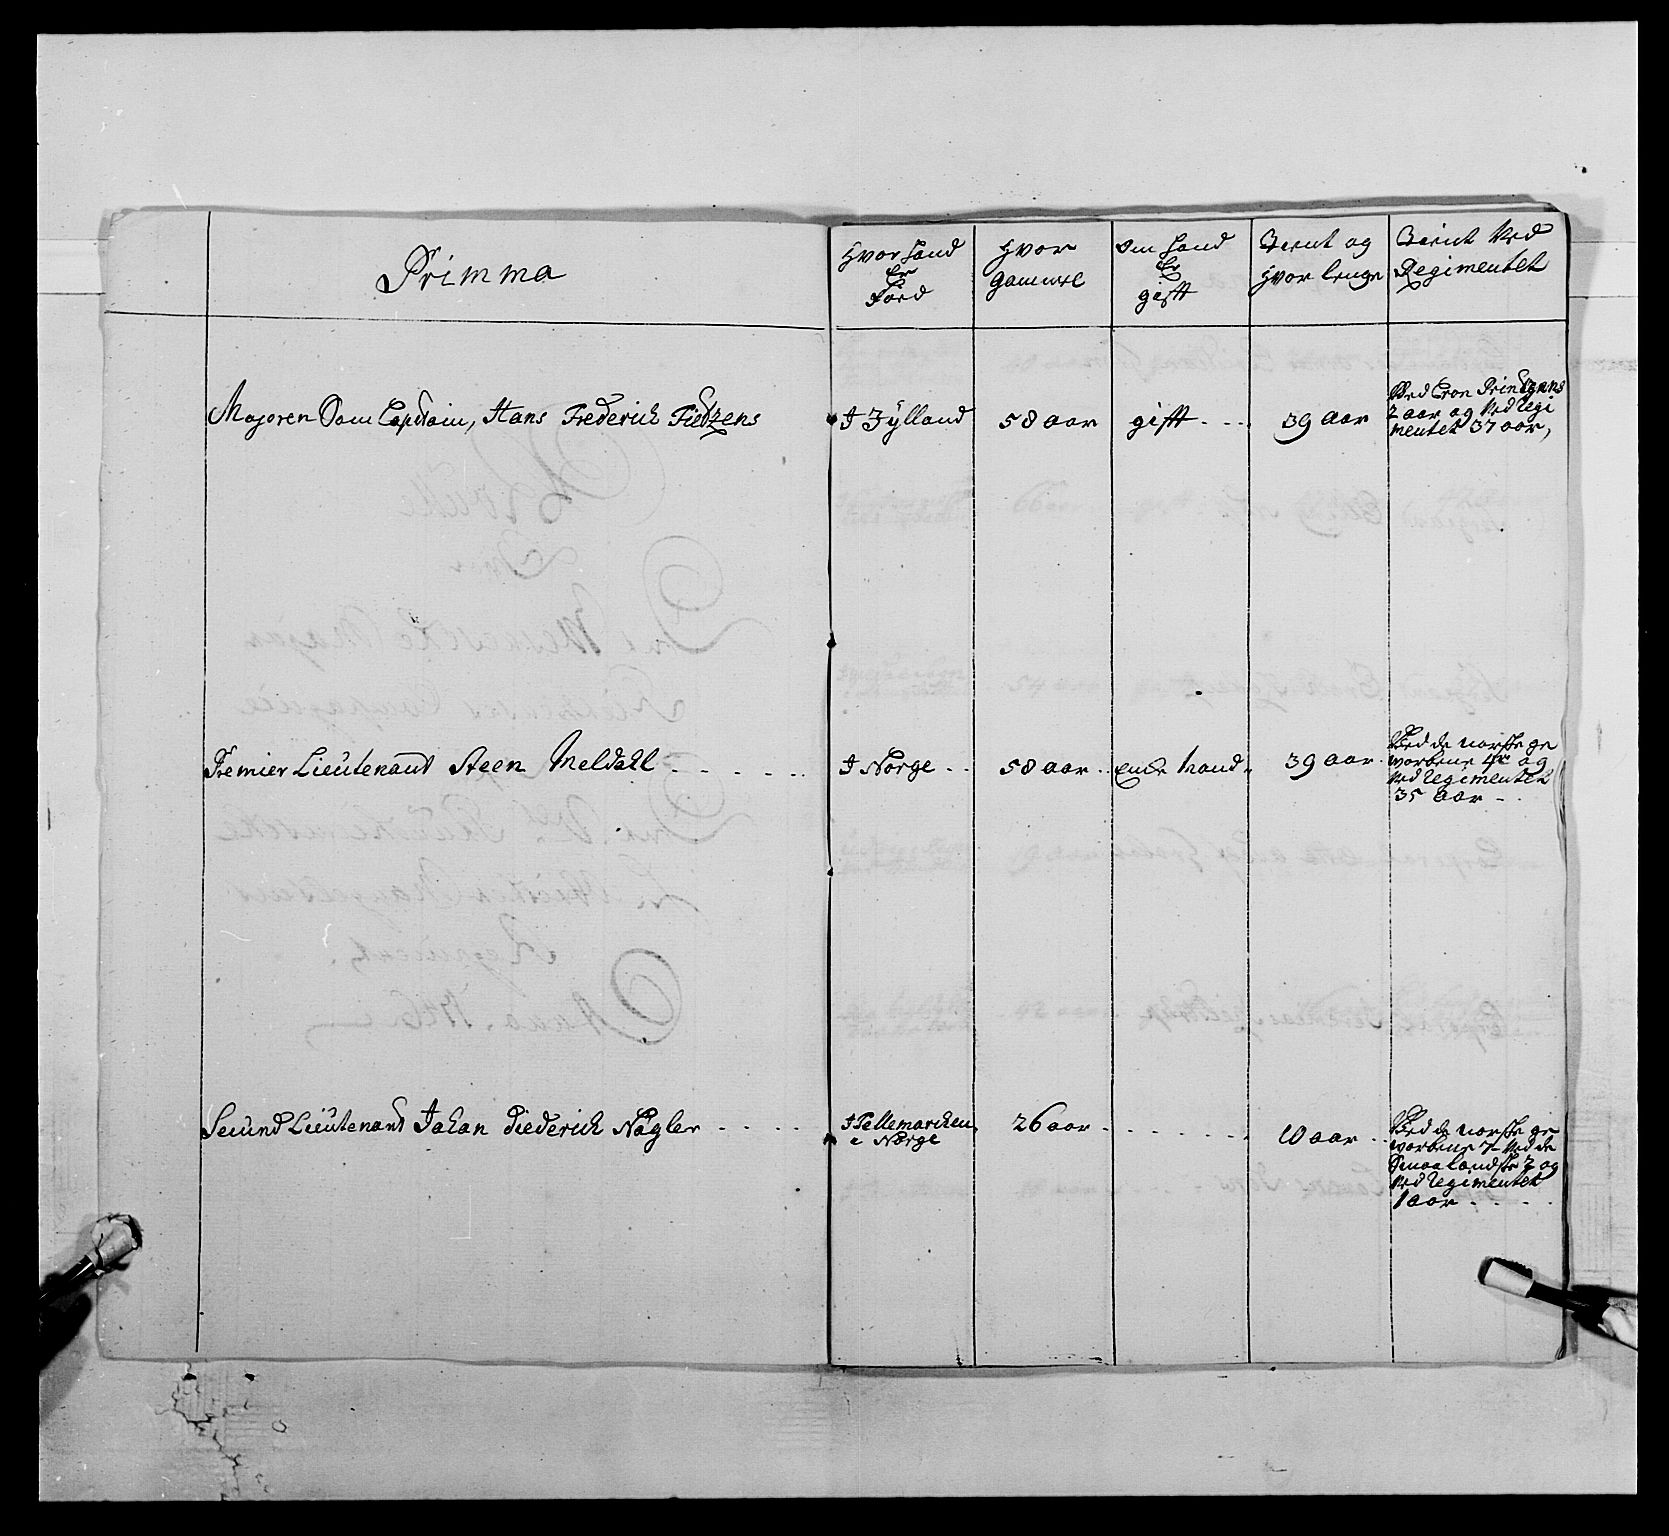 Primma
Hvor hand
Er
Förd
Hvor
gammel
Om hand
Er
gift
Tient og
Hvor lenge
Tient Ved
Regimentet
Majoren Som Capitain, Hans Frederich Tietzens
I Jylland
58 aar
gift
39 Aar
Ved Cron Printzens
2 aar og Ved Regi
mentet 37 aar,
Premier Lieutenant Steen Meldahl
I Norge
58 aar
Encke Mand
39 aar
Ved de norske ge
worbene 4re og
Ved Regimentet
35 aar
Secund Lieutenant Johan Diederich Nägler
I Tellemarcken
i Norge
26 aar
10 aar
Ved de norske ge
worbene 7 Ved de
Smaalandske 2 og
Ved Regimentet
1 aar